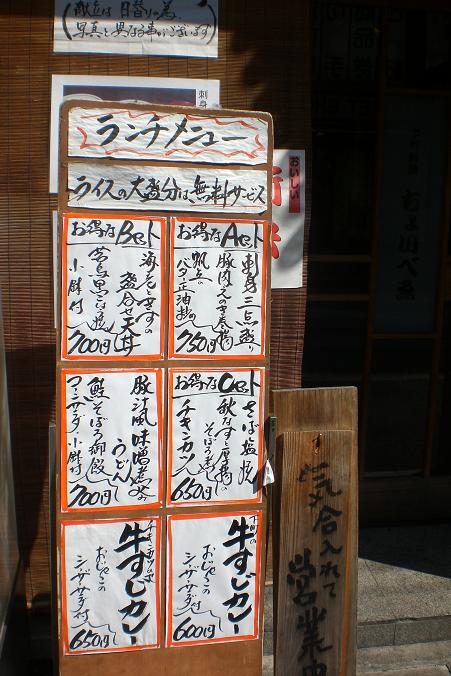 献立は日替りの為、
写真と異なる事がございます
刺身
ランチメニュー
ライスの大盛分は、無料サービス
おいしい
お得なAset
刺身三点盛り
豚肉えのき巻揚
帆立の
バター正油炒め
750円
お得なBset
海老ときすの
盛合せ天丼
小鉢付
700円
お得なCset
さば塩焼
秋なすと厚揚の
そぼろ煮
チキンカツ
650円
豚汁風味噌煮込
うどん
鮭そぼろ御飯
マカサラダ、小鉢付
700円
牛すじカレー
おじゃこの
シーザーサラダ付
600円
牛すじカレー
おじゃこの
シーザーサラダ付
650円
気合入れて
営業中